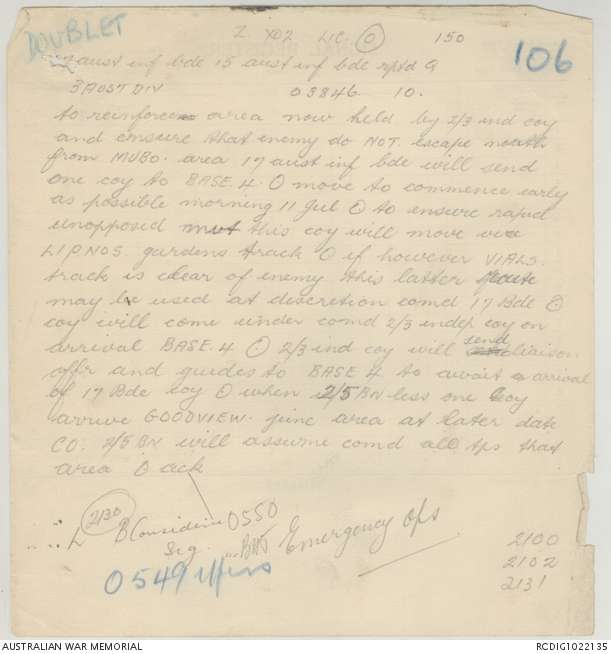 DOUBLET
Z YO2 LIC. O 150
106
17 aust inf bde 15 aust inf bde rptd G
3 AUST DIV 03846 10.
to reinforce area now held by 2/3 ind coy
and ensure that enemy do NOT escape south
from MUBO. area 17 aust inf bde will send
one coy to BASE.4. O move to commence early
as possible morning 11 Jul O to ensure rapid
unopposed mvt this coy will move via
LIPNOS. gardens track O if however VIALS.
track is clear of enemy this latter route
may be used at discretion comd 17 Bde O
coy will come under comd 2/3 indep coy on
arrival BASE.4 O 2/3 ind coy will send liaison
offr and guides to BASE 4 to await arrival
of 17 Bde coy O when 2/5 BN less one coy
arrive GOODVIEW. junc area at later date
CO. 2/5 BN will assume comd all tps that
area O ack
2130
B Considine 0550
Sig. Emergency Ops
0549
2100
2102
2131
AUSTRALIAN WAR MEMORIAL
RCDIG1022135